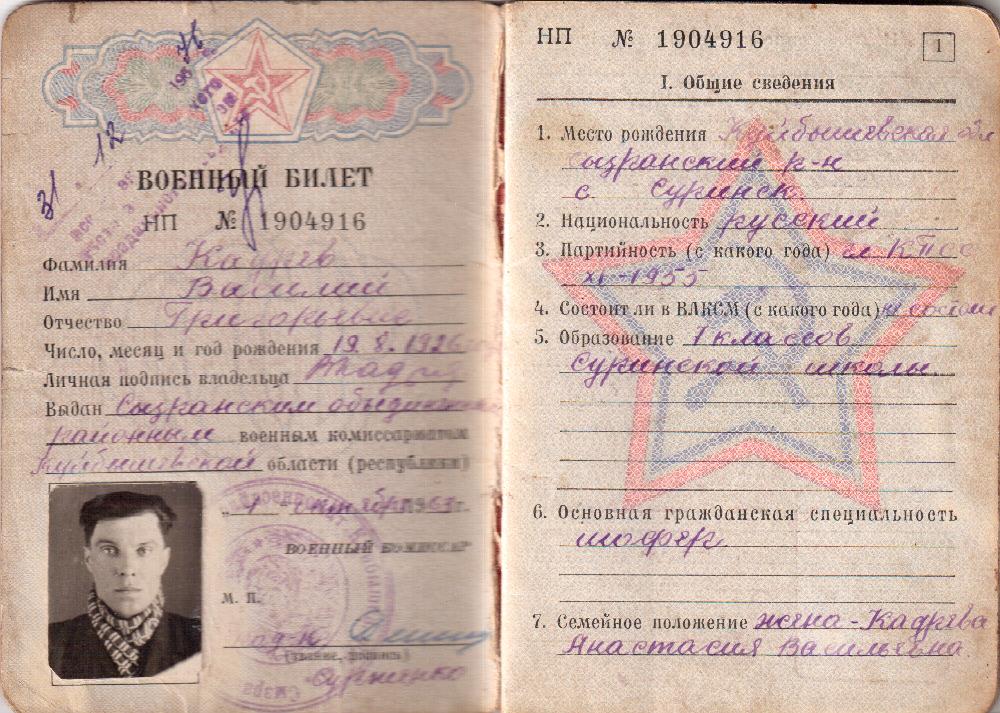 ВОЕННЫЙ БИЛЕТ
НП № 1904916
Фамилия Кадрев
Имя Василий
Отчество Григорьевич
Число, месяц и год рождения 19.8.1926
Личная подпись владельца
Выдан Сызранским объединенным
районным военным комиссариатом
Куйбышевской области (республики)
октября 1963 г.
ВОЕННЫЙ КОМИССАР
М. П.
(звание, подпись)
НП № 1904916
1
I. Общие сведения
1. Место рождения Куйбышевская обл
сызранский р-н
с. Суринск
2. Национальность русский
3. Партийность (с какого года) чл КПСС
XI-1955
4. Состоит ли в ВЛКСМ (с какого года) не состоит
5. Образование 7 классов
Суринской школы.
6. Основная гражданская специальность
шофер
7. Семейное положение жена - Кадрева
Анастасия Васильевна.